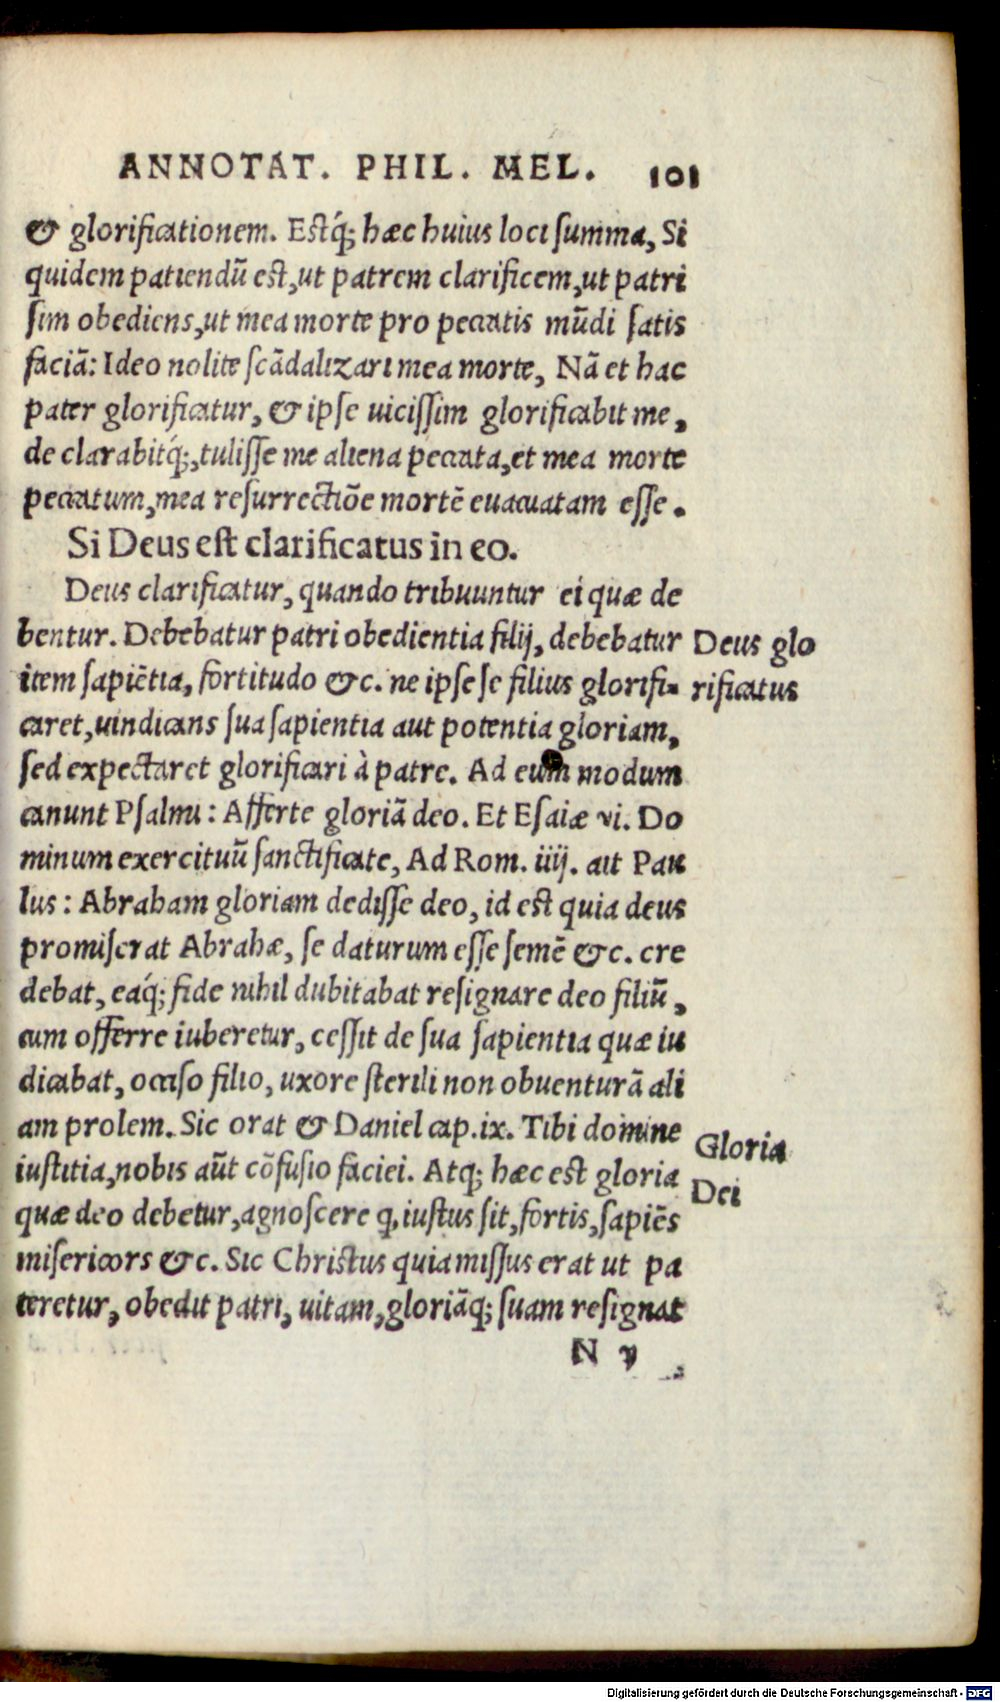 ANNOTAT. PHIL. MEL. 101
& glorificationem. Estq́; hæc huius loci summa, Si
quidem patiendū est, ut patrem clarificem, ut patri
sim obediens, ut mea morte pro peccatis mūdi satis
faciā: Ideo nolite scādalizari mea morte, Nā et hac
pater glorificatur, & ipse uicissim glorificabit me,
de clarabitq́;, tulisse me aliena peccata, et mea morte
peccatum, mea resurrectiōe mortē euacuatam esse.
Si Deus est clarificatus in eo.
Deus clarificatur, quando tribuuntur ei quæ de
bentur. Debebatur patri obedientia filij, debebatur
Deus glo
item sapiētia, fortitudo &c. ne ipse se filius glorifi-
rificatus
caret, uindicans sua sapientia aut potentia gloriam,
sed expectaret glorificari à patre. Ad eum modum
canunt Psalmi: Afferte gloriā deo. Et Esaiæ vi. Do
minum exercituū sanctificate, Ad Rom. iiij. ait Pau
lus: Abraham gloriam dedisse deo, id est quia deus
promiserat Abrahæ, se daturum esse semē &c. cre
debat, eaq́; fide nihil dubitabat resignare deo filiū,
cum offerre iuberetur, cessit de sua sapientia quæ iu
dicabat, occiso filio, uxore sterili non obuenturā ali
am prolem. Sic orat & Daniel cap. ix. Tibi domine
Gloria
iustitia, nobis aūt cōfusio faciei. Atq; hæc est gloria
Dei
quæ deo debetur, agnoscere ꝙ iustus sit, fortis, sapiēs
misericors &c. Sic Christus quia missus erat ut pa
teretur, obedit patri, uitam, gloriāq; suam resignat
N v
Digitalisierung gefördert durch die Deutsche Forschungsgemeinschaft - DFG